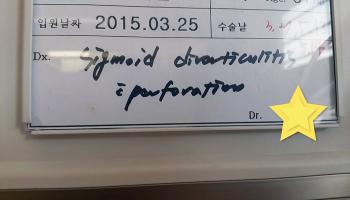 입원날짜 2015.03.25 수술날
Dx. Sigmoid diverticulitis
c̄ perforation
Dr.